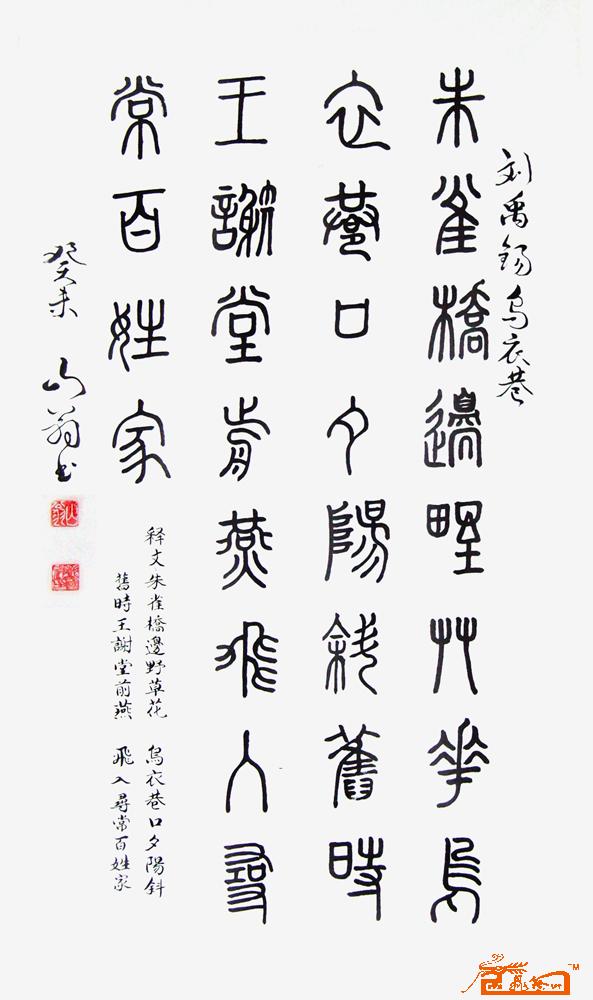 刘禹锡乌衣巷
朱雀橋邊野艸華烏
衣巷口夕陽斜舊時
王謝堂前燕飛入尋
常百姓家
释文朱雀橋邊野草花 烏衣巷口夕陽斜
舊時王謝堂前燕 飛入尋常百姓家
癸未 山翁书